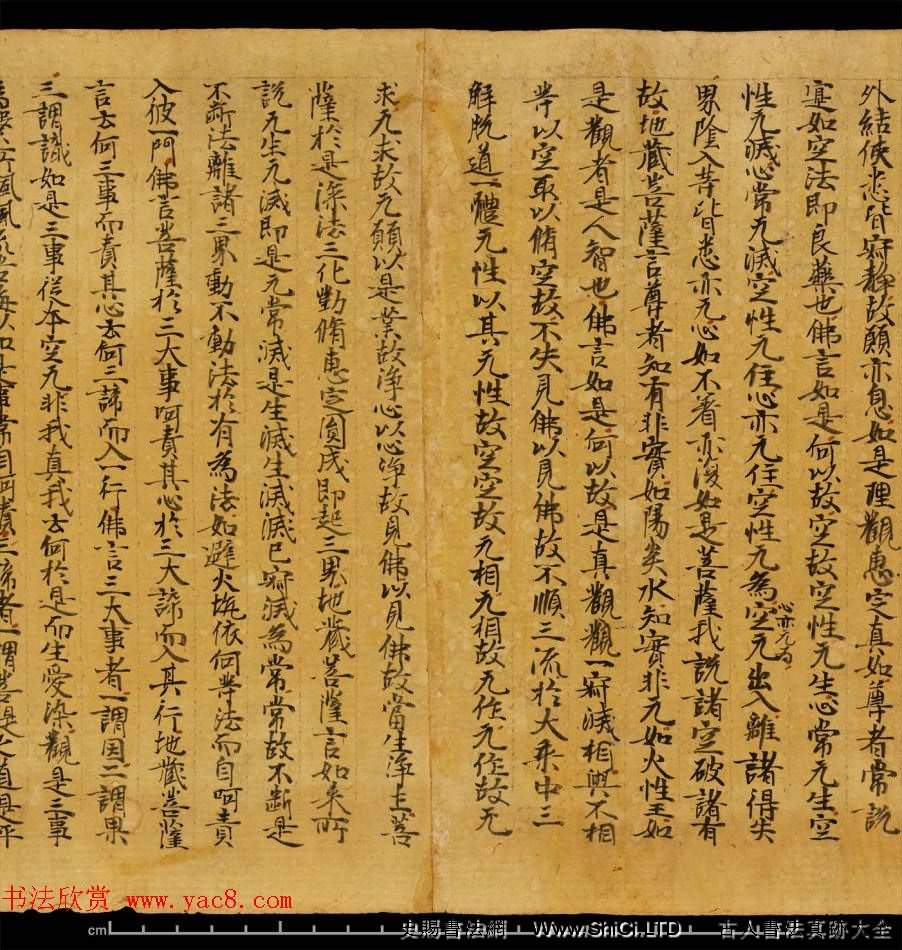 外結使悉皆寂靜故願亦息如是理觀惠定真如尊者常說
寔如空法即良藥也佛言如是何以故空故空性无生心常无生空
性无滅心常无滅空性无住心亦无住空性无為心亦无為空无出入離諸得失
界陰入等皆悉亦无心如不著亦復如是菩薩我說諸空破諸有
故地藏菩薩言尊者知有非實如陽炎水知實非无如火性王如
是觀者是人智也佛言如是何以故是真觀觀一寂滅相與不相
等以空取以脩空故不失見佛以見佛故不順三流於大乘中三
解脫道一體无性以其无性故空空故无相无相故无作无作故无
求无求故无願以是業故淨心以心淨故見佛以見佛故當生淨土菩
薩於是深法三化勤脩惠定圓成即超三界地藏菩薩言如來所
說无生无滅即是无常滅是生滅生滅滅已寂滅為常常故不斷是
不斷法離諸三界動不動法於有為法如避火坑依何等法而自呵責
入彼一門佛言菩薩於三大事呵責其心於三大諦而入其行地藏菩薩
言云何三事而責其心云何三諦而入一行佛言三大事者一謂因二謂果
三謂識如是三事從本空无非我真我云何於是而生愛染觀是三事
书法欣赏 www.yac8.com
cm 史賜書法網 WwW.ShiCi.LTD 古人書法真跡大全